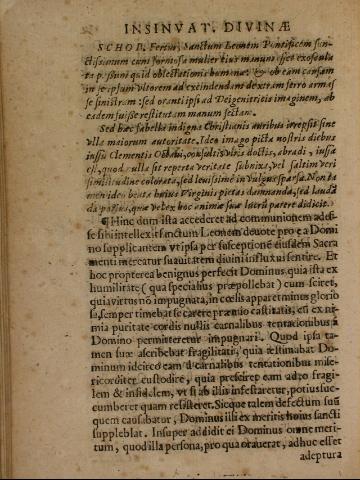 INSINVAT. DIVINÆ
SCHOR. Fertur, Sanctum Leonem Pontificem san-
ctissimum cum formosa mulier eius manum esset exoscula
ta passum quid oblectationis humanæ: & ob eam causam
in se ipsum vltorem ad excindendam dextram ferro armas-
se sinistram: sed oranti ipsi ad Deigenitricis imaginem, ab
eadem fuisse restitutam manum sectam.
Sed hæc fabella indigna Christianis auribus irrepsit sine
vlla maiorum autoritate. Ideo imago picta nostris diebus
iussu Clementis Octaui, consultis viris doctis, abradi, iussa
est, quod nulla sit reperta veritate subnixa, vel saltem veri
similitudine colorata, sed leuissime in vulgus sparsa. Non ta
men ideo beata huius Virginis pietas damnanda, sed lauda
da potius, quæ velex hoc animæ suæ lucra parere didicit.
¶ Hinc dum ista accederet ad communionem adesse
se sibi intellexit sanctum Leonem deuote pro ea Domi
no supplicantem vt ipsa per susceptionē eiusdem Sacra
menti mereatur suauitatem diuini influxus sentire. Et
hoc propterea benignus perfecit Dominus quia ista ex
humilitate (qua specialius præpollebat) cum sciret,
quia virtus nō impugnata, in cœlis apparet minus glorio
sa, semper timebat se carere præmio castitatis, eū ex ni-
mia puritate cordis nullis carnalibus tentationibus à
Domino permitteretur impugnari. Quod ipsa ta-
men suæ ascribebat fragilitati, quia æstimabat Do-
minum idcirco eam à carnalibus tentationibus mise-
ricorditer custodire, quia presciret eam adeo fragi-
lem & infidelem, vt si ab illis infestaretur, potius suc-
cumberet quam resisteret. Sicque talem defectum suū
quem causabatur, Dominus illi ex meritis huius sancti
suppleblat. Insuper addidit ei Dominus omne meri-
tum, quod illa persona, pro qua orauerat, adhuc esset
adeptura